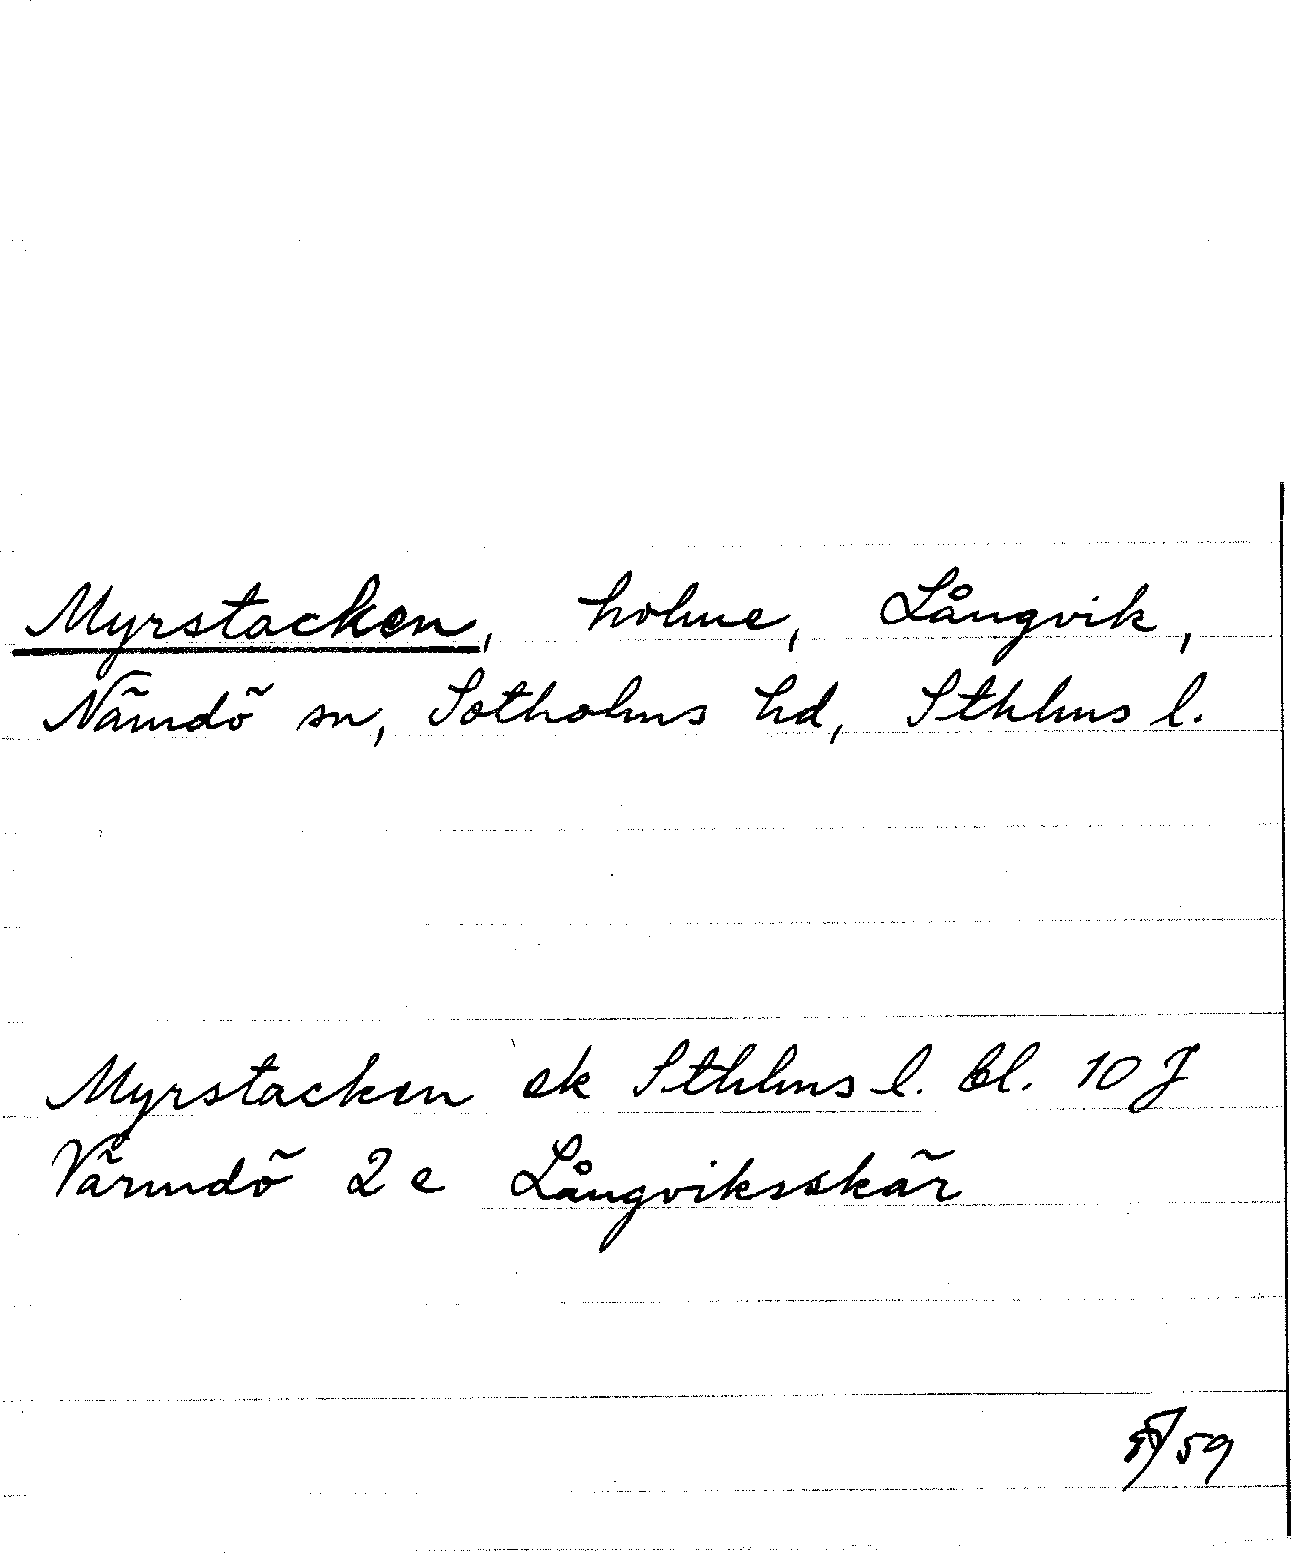 Myrstacken, holme, Långvik,
Nämdö sn, Sotholms hd, Sthlms l.
Myrstacken ek Sthlms l. bl. 10 J
Värmdö 2 e Långviksskär
59